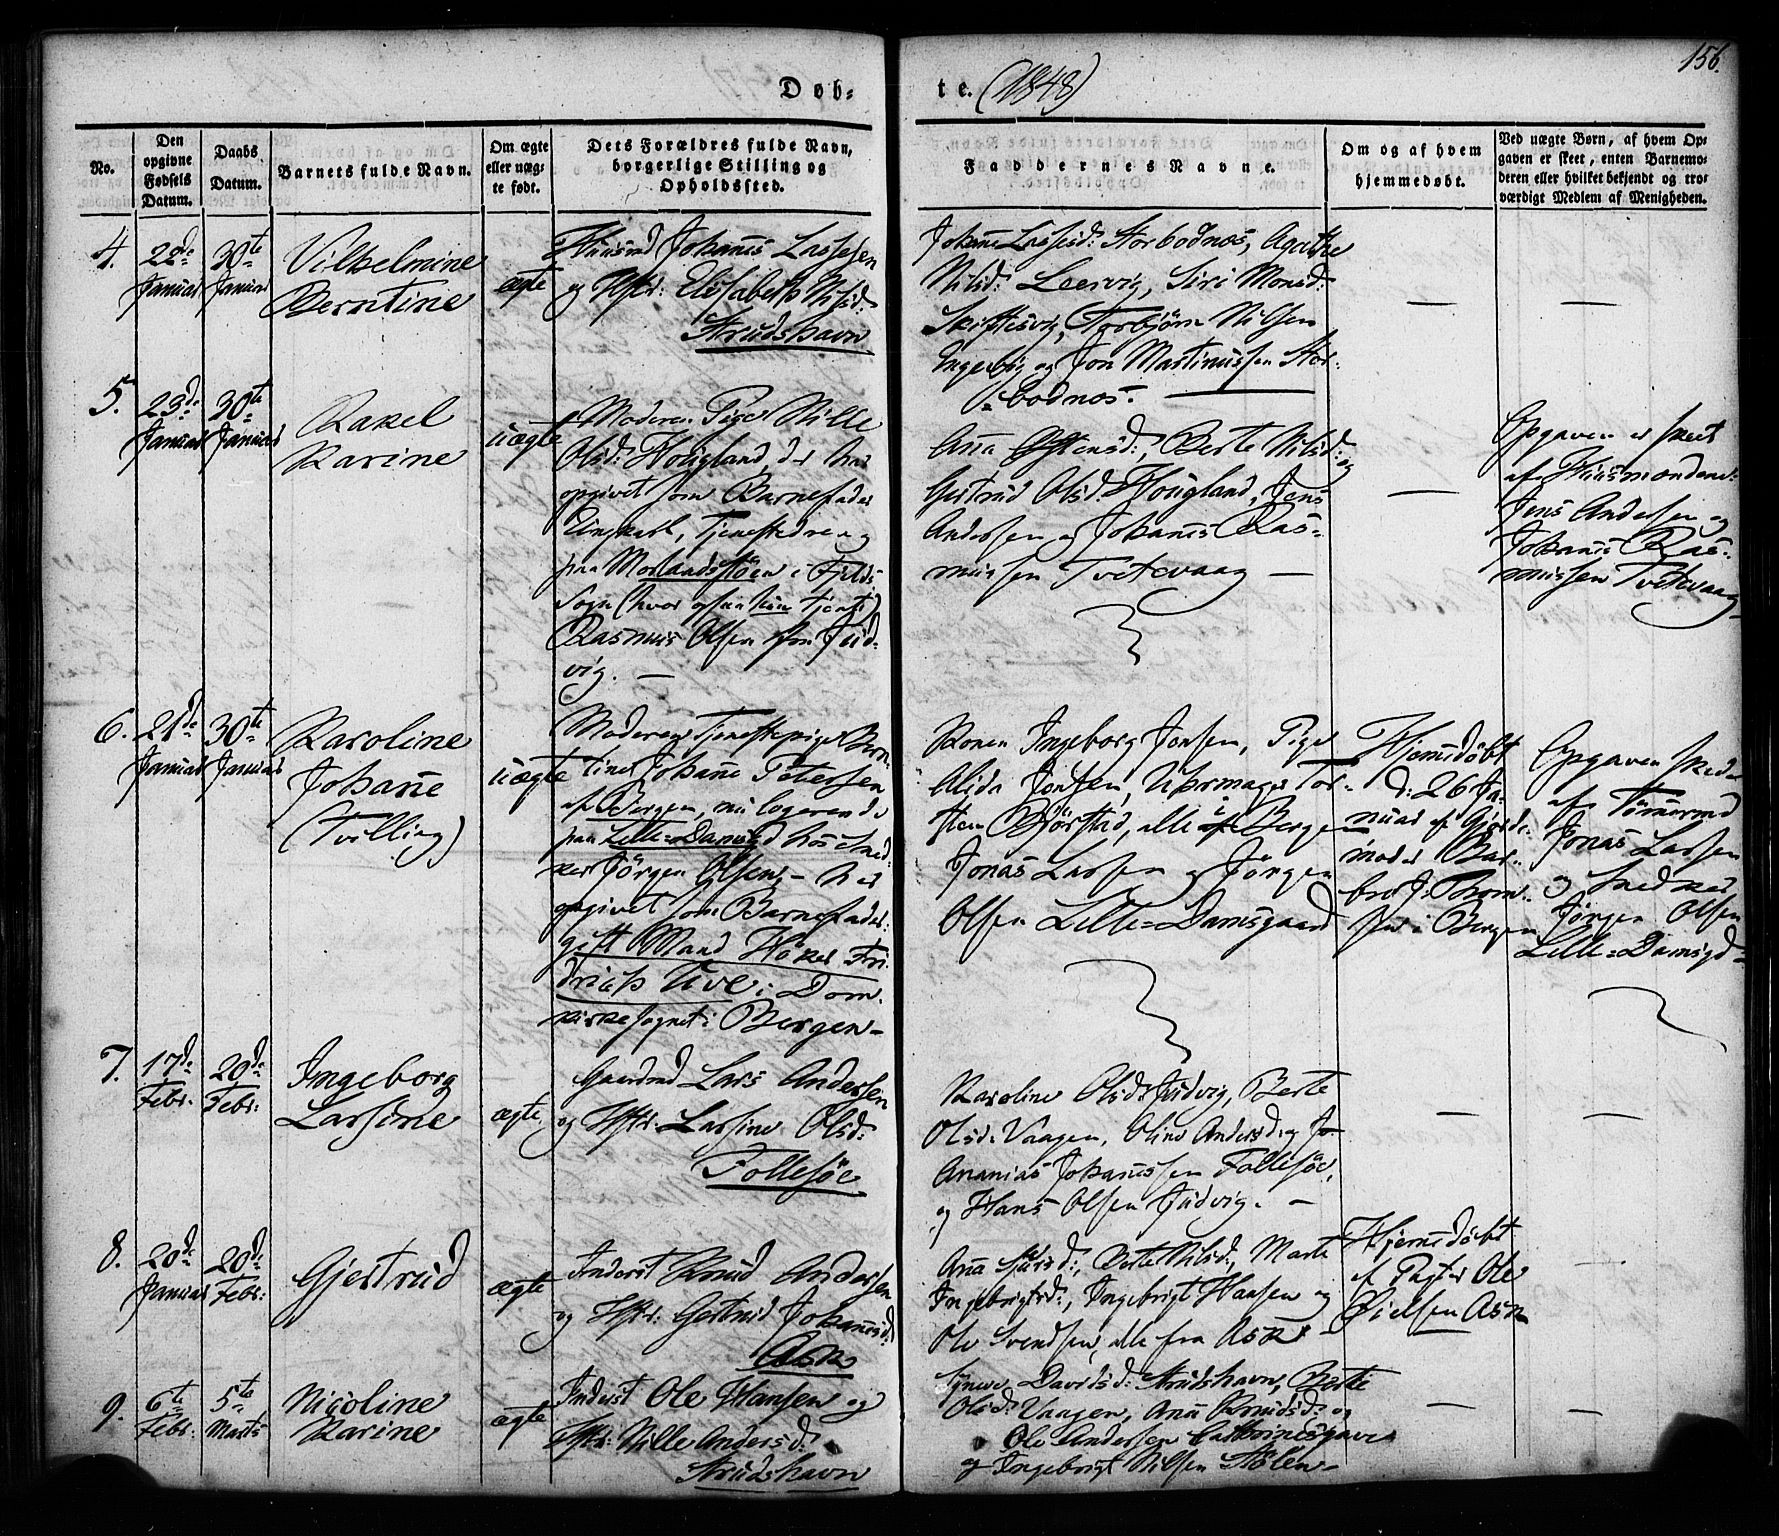 156.
Døb-
te. (1848)
No.
Den opgivne Fødsels Datum.
Daabs Datum.
Barnets fulde Navn.
Om ægte eller uægte født.
Dets Forældres fulde Navn, borgerlige Stilling og Opholdssted.
Faddernes Navne.
Om og af hvem hjemmedøbt.
Ved uægte Børn, af hvem Opgaven er skeet, enten Barnemoderen eller hvilket bekjendt og troværdigt Medlem af Menigheden.
4.
22de Januar
30te Januar
Vilhelmine
Berntine
ægte
Huusmd Johannes Lassesen
og Hstr: Elisabeth Nilsd:
Strudshavn
Johanne Lassesd: Storbodnes, Agathe
Nilsd: Leervig, Siri Monsd:
Skiftesvig, Torbjörn Nilsen
og Jon Martinussen Stor-
bodnes.
—
—
5.
23de Januar
30te Januar
Rakel
Karine
uægte
Moderen Pige Nille
Olsd: Hougland, der har
opgivet som Barnefader
Ungkarl, Tjenestedreng
paa Morlandstöen i Fjelds
Sogn (hvor ogsaa hun tjente)
Rasmus Olsen fra Jud-
vig. —
Anna Östensd:, Berte Nilsd: og
Gertrud Olsd Hougland, Jens
Andersen og Johannes Ras-
mussen Tvetevaag —
—
Opgaven er skeet
af Huusmændene
Jens Andersen og
Johannes Ras-
mussen Tvetevaag
6.
21de Januar
30te Januar
Karoline
Johanne
(Tvilling)
uægte
Moderen Tjenestepige Bern-
tine Johanne Petersen
af Bergen, nu logerende
paa Lille-Damsgd hos Sned-
ker Jörgen Olsen, — har
opgivet som Barnefader:
gift Mand Höker Fri-
drich Uve i Dom-
kirkesognet i Bergen —
Konen Ingeborg Jensen, Pige
Alida Jensen, Uhrmager Tor-
sten Björstad, alle i Bergen
Jonas Larsen og Jörgen
Olsen Lille-Damsgaard
Hjemedöbt
d: 26 Ja-
nuar af Gjorde-
moder Bar-
bro J: Thom-
sen i Bergen
Opgaven skede
af Tömmermd
Jonas Larsen
og Snedker
Jörgen Olsen
Lille-Damsgd —
7.
17de Febr.
20de Febr:
Ingeborg
Larsine
ægte
Gaardmd Lars Andersen
og Hstr: Larsine Olsd:
Follesöe
Karoline Olsd Judvig, Berte
Olsd: Vaagen, Oline Andersd: og
Ananias Johannessen Follesöe,
og Hans Olsen Judvig. —
—
—
8.
20de Januar
20de Febr:
Gjertrud
ægte
Inderst Knud Andersen
og Hstr: Gertrud Johannesd:
Ask
Anna Sjursd:, Berte Nilsd:, Marte
Ingebrigtsd:, Ingebrigt Hansen og
Ole Svendsen, alle fra Ask —
Hjemedöbt
af Pagter Ole
Öielsen Ask
—
9.
6te Febr:
5te Marts
Nicoline
Karine
ægte
Inderst Ole Hansen og
Hstr: Nille Andersd:
Strudshavn
Syneve Davidsd: Strudshavn, Berte
Olsd: Vaagen, Anna Knudsd: og
Ole Andersen
og Ingebrigt Nilsen Stölen —
—
—